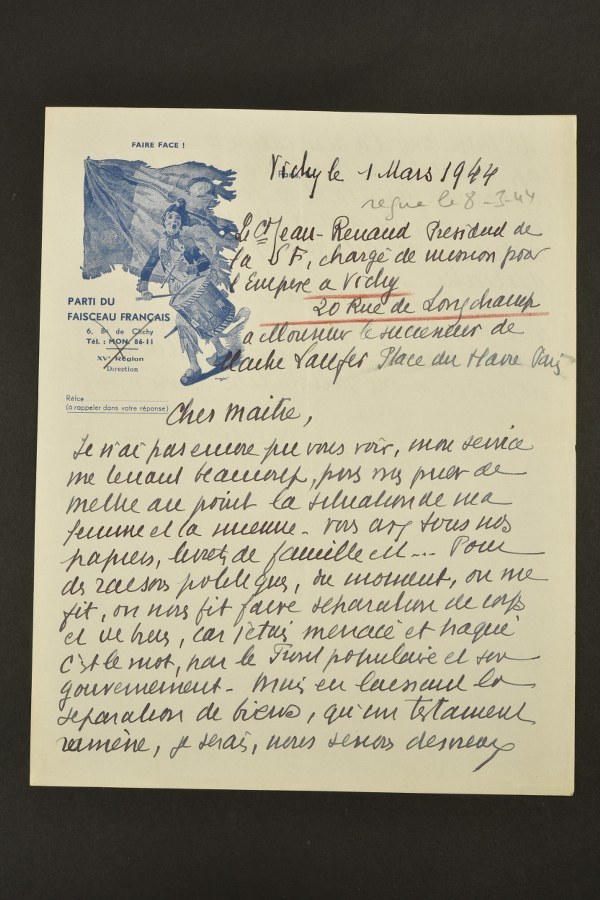 FAIRE FACE !
Vichy le 1 Mars 1944
reçue le 8-3-44
le Ct Jean-Renaud President de
la S F, chargé de mission pour
l'Empire a Vichy
20 Rue de Longchamp
PARTI DU
FAISCEAU FRANÇAIS
6, Bd de Clichy
Tél. : MON. 86-11
XVe Région
Direction
a Monsieur le successeur de
Place du Havre Paris
Réfce
(à rappeler dans votre réponse)
Cher Maitre,
Je n'ai pas encore pu vous voir, mon service
me tenant beaucoup, pour vous prier de
mettre au point la situation de ma
femme et la mienne - vous avez tous nos
papiers, livret de famille et ... Pour
des raisons politiques, du moment, on me
fit, on nous fit faire séparation de corps
et de biens, car j'étais menacé et traqué
c'est le mot, par le Front populaire et son
gouvernement - Mais en laissant la
séparation de biens, qu'un testament
ramène, je serais, nous serions desireux